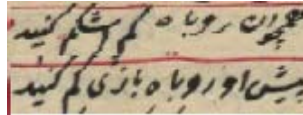 همچون روباه کم اشکم کنید
پیش او روباه بازی کم کنید